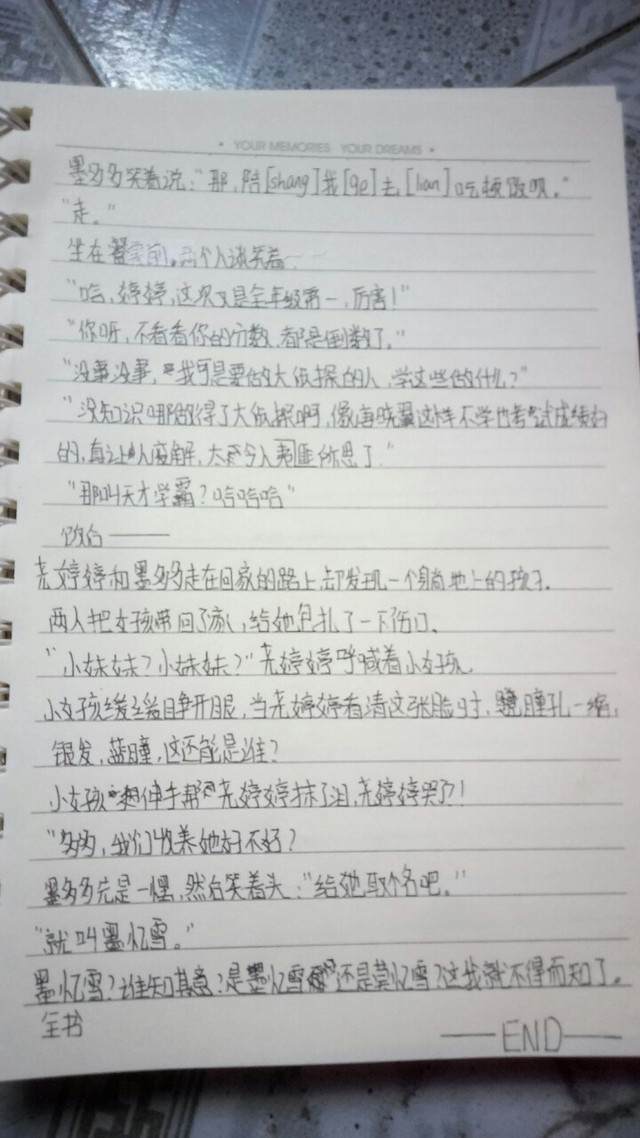 • YOUR MEMORIES YOUR DREAMS •
墨多多笑着说："那,陪[shang]我[ge]去[lian]吃顿饭呗。"
"走。"
坐在餐桌前,两个人谈笑着
"哈,婷婷,这次又是全年级第一,厉害!"
"你呀,不看看你的分数,都是倒数了。"
"没事没事,我可是要做大侦探的人,学这些做什么?"
"没知识哪做得了大侦探啊,像唐晓翼这样不学也考试成绩好
的,真让人费解,太令人匪夷所思了"
"那叫天才学霸?哈哈哈"
饭后——
尧婷婷和墨多多走在回家的路上,却发现一个躺地上的孩子.
两人把女孩带回了家,给她包扎了一下伤口.
"小妹妹?小妹妹?"尧婷婷呼喊着小女孩.
小女孩缓缓睁开眼,当尧婷婷看清这张脸时,瞳孔一缩,
银发,蓝瞳,这还能是谁?
小女孩想伸手帮尧婷婷抹了泪,尧婷婷哭了!
"多多,我们收养她好不好?
墨多多先是一愣,然后笑着头："给她取个名吧。"
"就叫墨忆雪。"
墨忆雪?谁知其意?是墨忆雪还是莫忆雪?这我就不得而知了。
全书
——END——